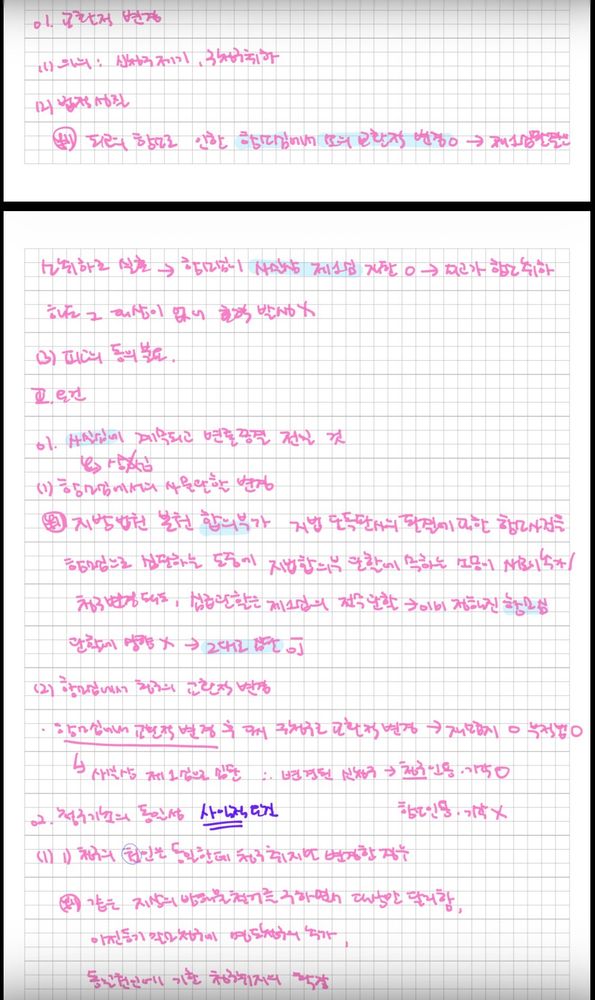 01. 교환적 변경
(1) 의의 : 신청구제기, 구청구취하
(2) 법적성질
판 피고의 항소로 인한 항소심에서 소의 교환적 변경 O → 제1심판결은
소취하로 실효 → 항소심이 사실상 제1심 재판 O → 피고가 항소취하
해도 그 대상이 없어 효력 발생 X
(3) 피고의 동의 불요.
Ⅲ. 요건
01. 사실심에 계속되고 변론종결 전일 것
↳ 상고심
(1) 항소심에서의 사물관할 변경
판 지방법원 본원 합의부가 지법 단독판사의 판결에 대한 항소사건을
항소심으로 심판하는 도중에 지법합의부 관할에 속하는 소송이 새로이 추가/
청구변경돼도, 심급관할은 제1심의 전속관할 → 이미 정해진 항소심
관할에 영향 X → 그대로 심판 可
(2) 항소심에서 청구의 교환적 변경
· 항소심에서 교환적 변경 후 다시 구청구로 교환적 변경 → 재소금지 O 부적법 O
↳ 사실상 제1심으로 심판 ∴ 변경된 신청구 → 청구인용·기각 O
02. 청구기초의 동일성 사익적 요건 항소인용·기각 X
(1) 1) 청구의 원인은 동일한데 청구취지만 변경한 경우
판 같은 지상의 방해물철거를 구하면서 대상만 달리함,
이전등기 말소청구에 청구의 추가,
동일원인에 기한 청구취지의 확장